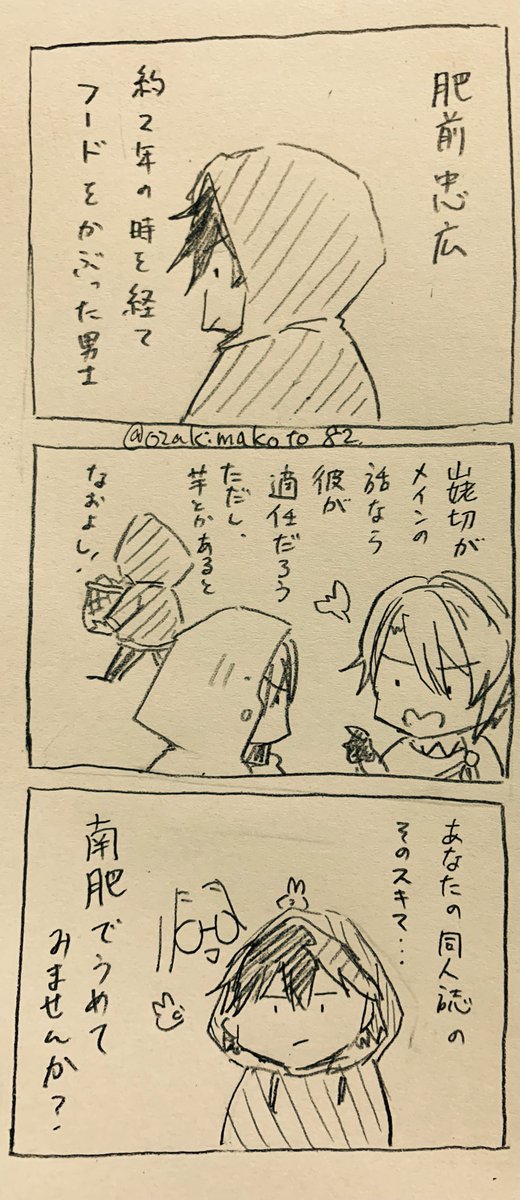 肥前忠広
約2年の時を経て
フードをかぶった男士
@ozakimakoto82
山姥切が
メインの
話なら
彼が
適任だろう
ただし、
芋とかあると
なおよし!
あなたの同人誌の
そのスキマ…
南肥でうめて
みませんか?